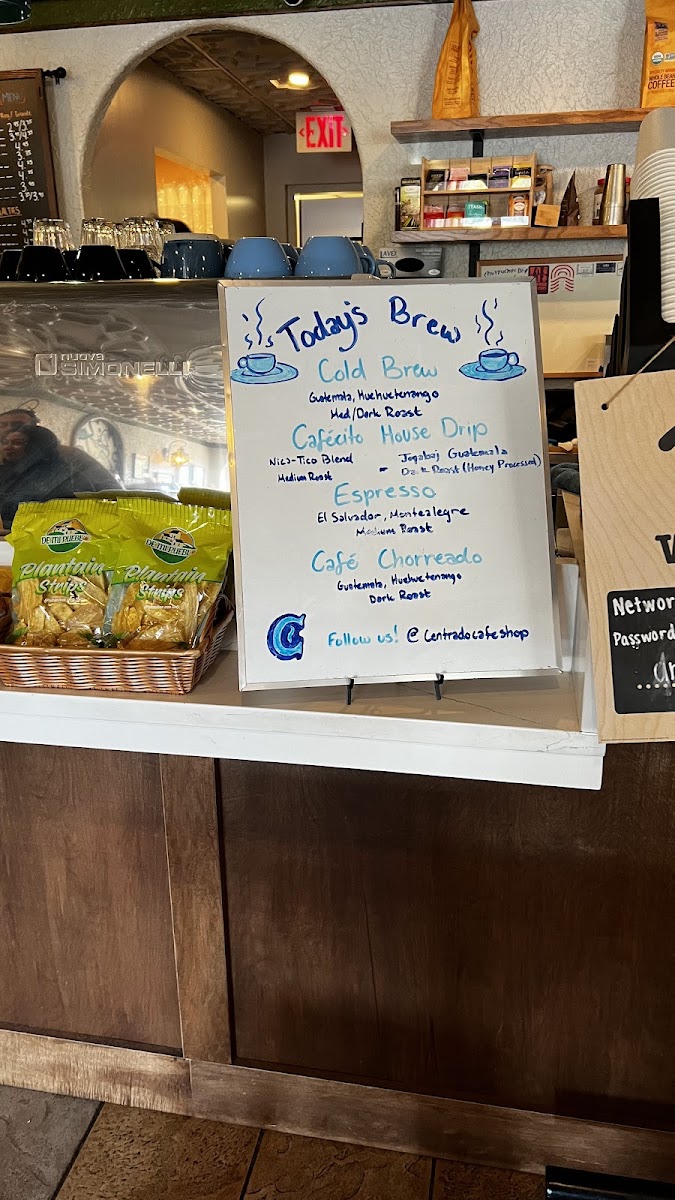 EXIT
MENU
WHOLE BEAN
COFFEE
LAVEX
nuova
SIMONELLI
Today's Brew
Cold Brew
Guatemala, Huehuetenango
Med/Dark Roast
Cafécito House Drip
Nica-Tico Blend
Medium Roast
- Jogabaj Guatemala
Dark Roast (Honey Processed)
Espresso
El Salvador, Montealegre
Medium Roast
Café Chorreado
Guatemala, Huehuetenango
Dark Roast
Follow us! @Centradocafeshop
DE MI PUEBLO
Plantain
Strips
DE MI PUEBLO
Plantain
Strips
Networ
Password